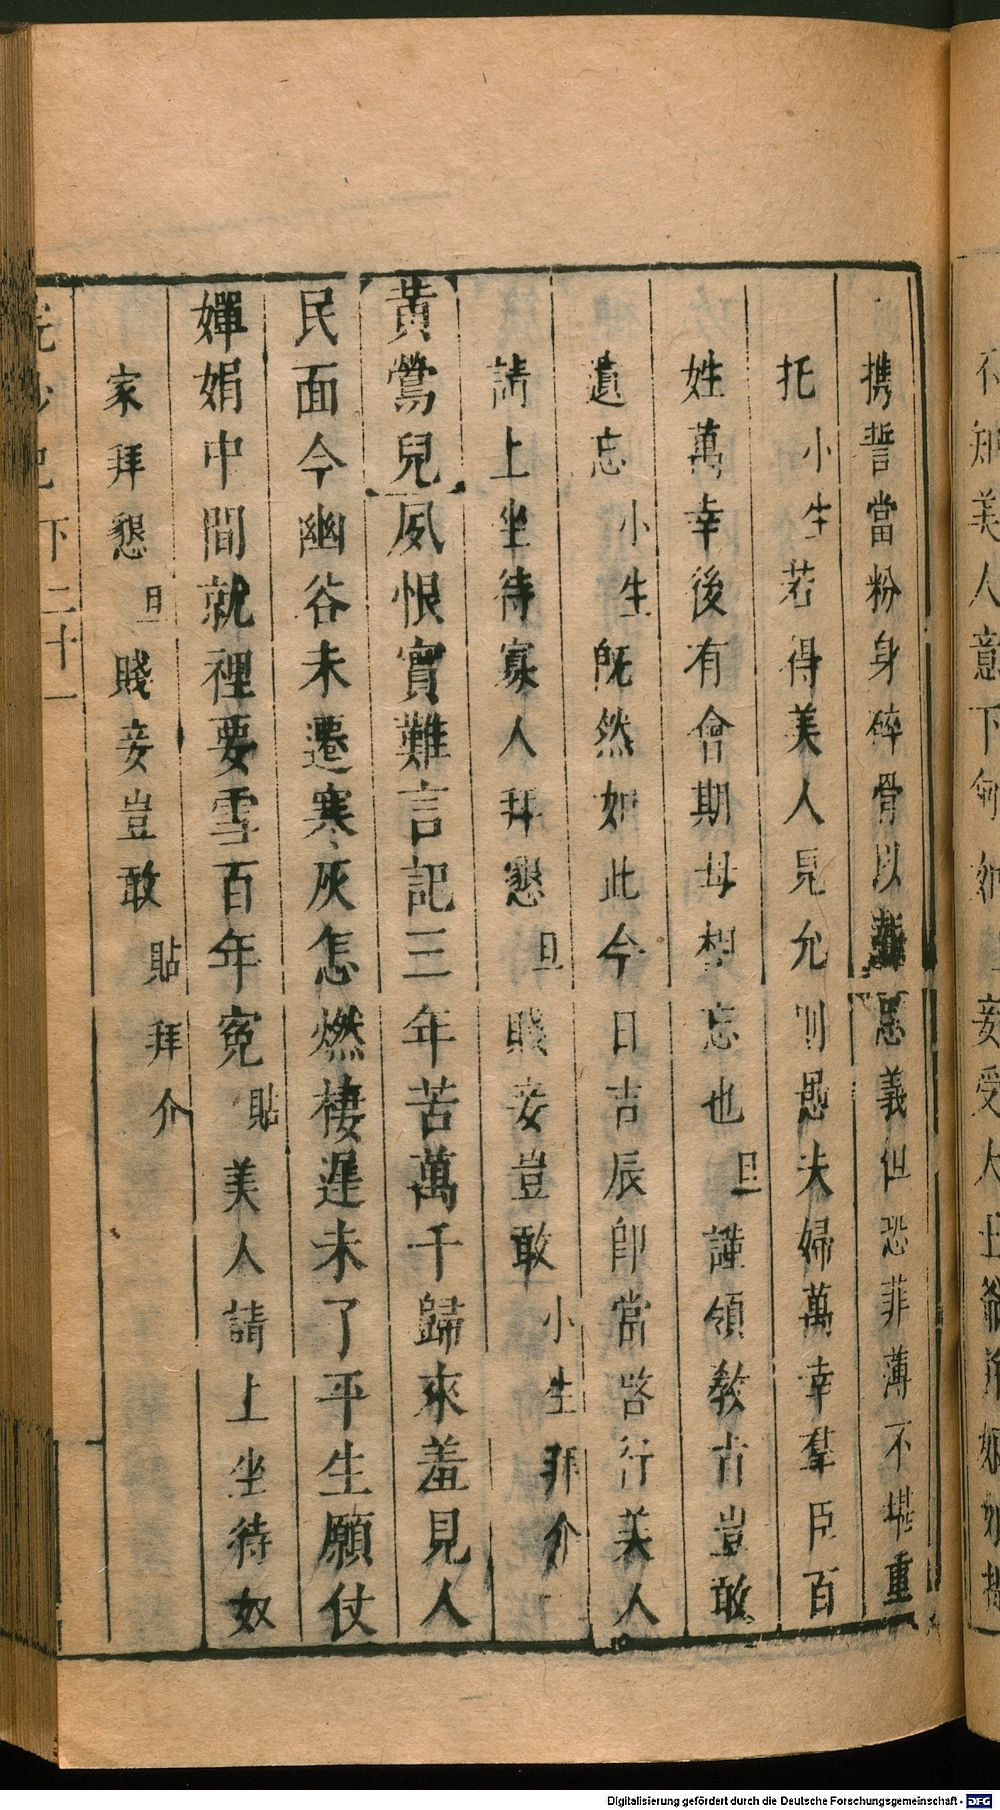 携誓當粉身碎骨以報恩義但恐菲薄不堪重
托小生若得美人見允則愚夫婦萬幸羣臣百
姓萬幸後有會期毋相忘也旦謹領教旨豈敢
遺忘小生旣然如此今日吉辰卽當啓行美人
請上坐待寡人拜懇旦賤妾豈敢小生拜介
黃鶯兒夙恨實難言記三年苦萬千歸來羞見人
民面今幽谷未遷寒灰怎燃棲遲未了平生願仗
嬋娟中間就裡要雪百年寃貼美人請上坐待奴
家拜懇旦賤妾豈敢貼拜介
浣紗記下二十一
Digitalisierung gefördert durch die Deutsche Forschungsgemeinschaft - DFG